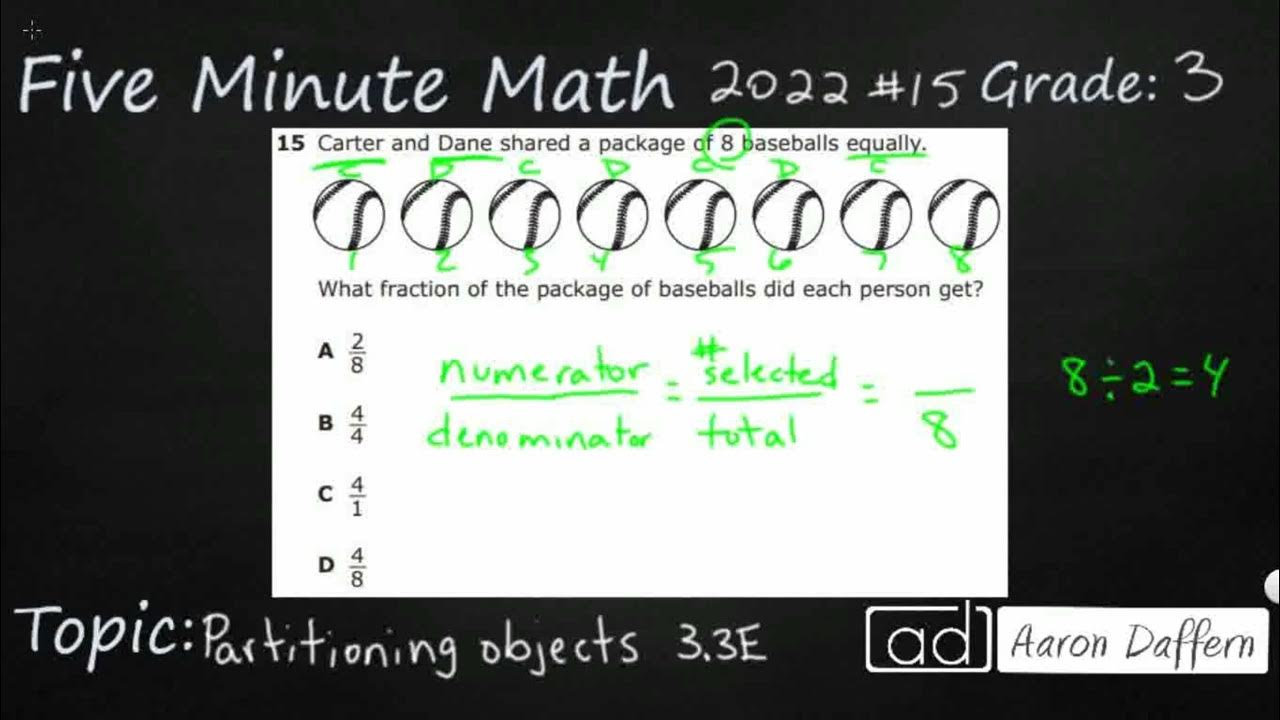 Five Minute Math 2022 #15 Grade: 3
15 Carter and Dane shared a package of 8 baseballs equally.
C D C D C D C
1 2 3 4 5 6 7 8
What fraction of the package of baseballs did each person get?
A 2/8
B 4/4
C 4/1
D 4/8
numerator/denominator = # selected/total = /8
8÷2=4
Topic: Partitioning objects 3.3E
ad Aaron Daffern